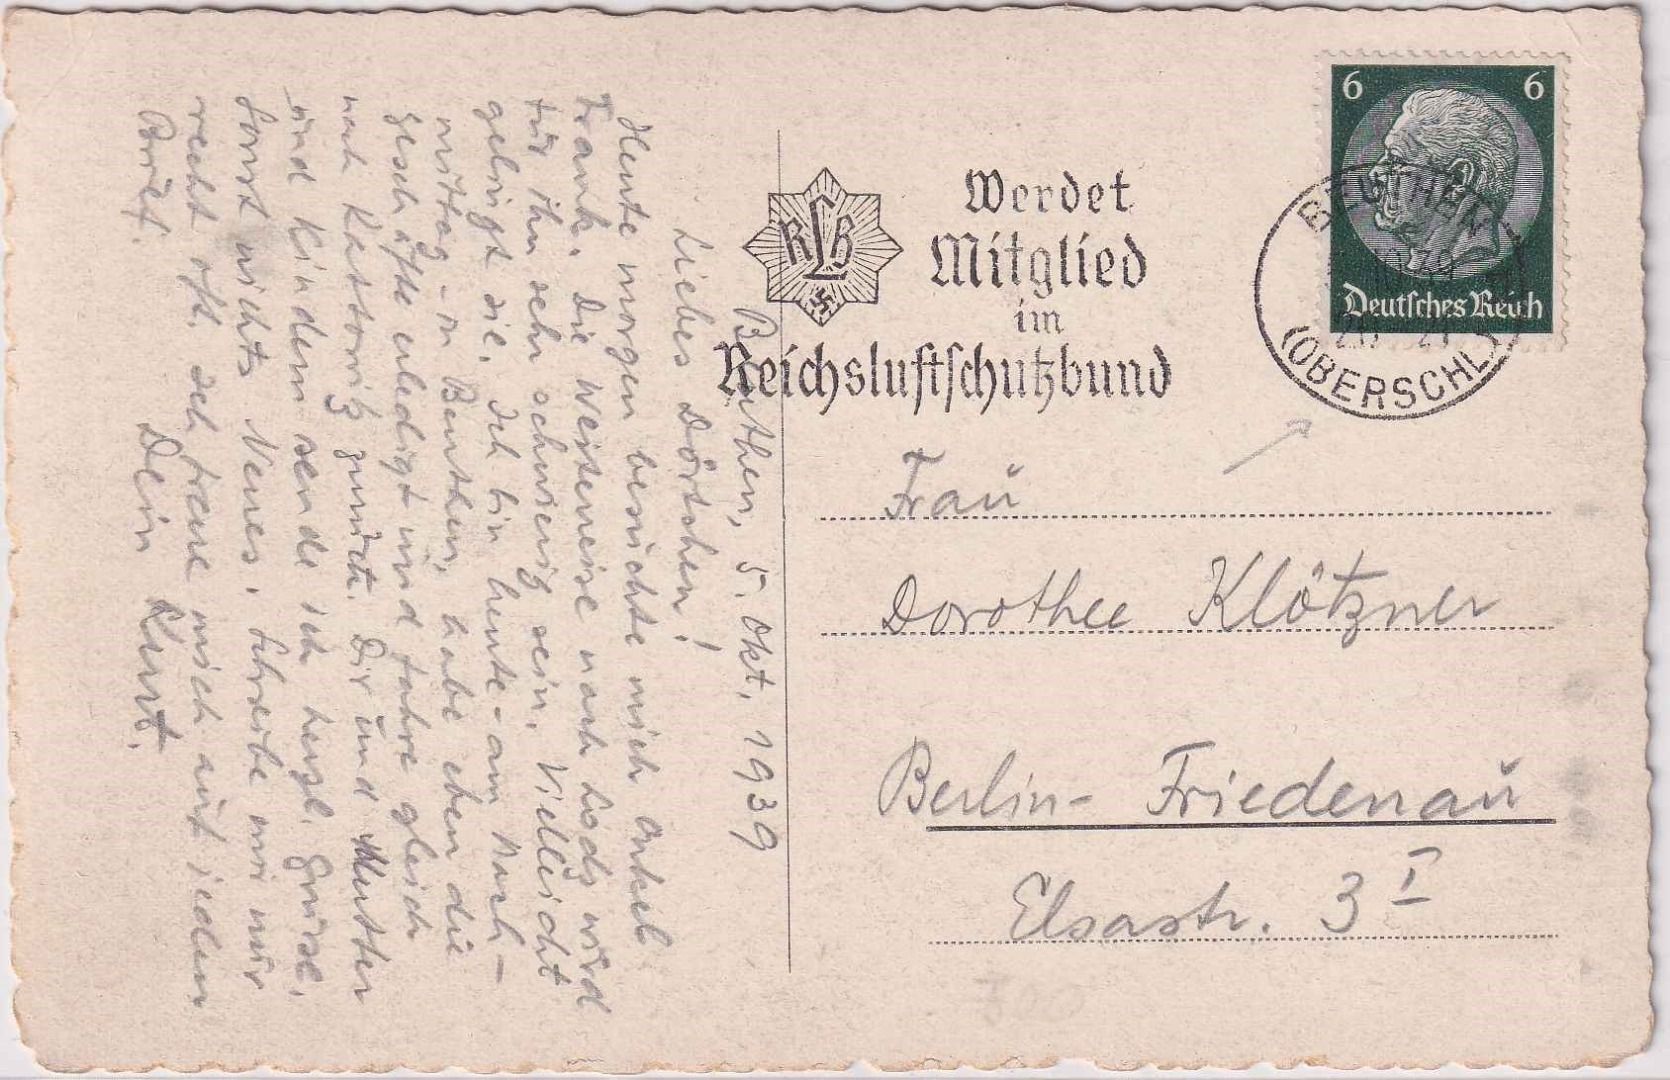 Beuthen, 5. Okt. 1939
Liebes Dörtchen!
Heute morgen besuchte mich Onkel
Frank. Die Weiterreise nach Lodz wird
für ihn sehr schwierig sein. Vielleicht
gelingt sie. Ich bin heute - am Nach-
mittag - in Beuthen, habe eben die
Geschäfte erledigt und fahre gleich
nach Kattowitz zurück. Dir und Mutter
und Kindern sende ich herzl. Grüsse.
Sonst nichts Neues. Schreibe mir nur
recht oft. Ich freue mich auf jeden
Brief.
Dein Kurt.
RLB
Werdet
Mitglied
im
Reichsluftschutzbund
6 6
Deutsches Reich
BEUTHEN
(OBERSCHL)
Frau
Dorothee Klötzner
Berlin-Friedenau
Elsastr. 3 I